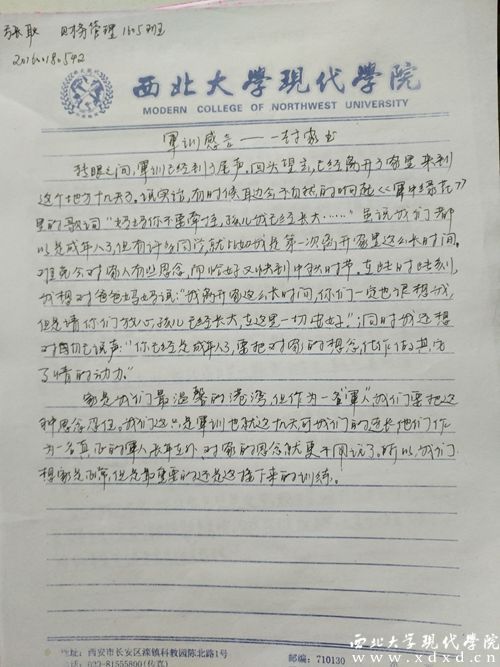 张耿 财务管理1605班
20160180542
西北大学现代学院
MODERN COLLEGE OF NORTHWEST UNIVERSITY
軍训感言——一封家书
转眼之间,軍训已经到了尾声。回头望去,已经离开了家里来到
这个地方十几天了。说实话,有时候耳边会不自然的响起《軍中绿花》
里的歌词"妈妈你不要牵挂,孩儿我已经长大……"虽说我们都
以是成年人了,但有许多同学,就比如我是第一次离开家里这么长时间。
难免会对家人有些思念,而恰好又快到中秋时节。在此时此刻,
我想对爸爸妈妈说:"我离开家这么长时间,你们一定也很想我,
但是请你们放心,孩儿已经长大,在这里一切安好。"同时我还想
对自己说声:"你已经是成年人了,要把对家的思念,化作
的动力。"
家是我们最温馨的港湾,但作为一名"軍人"我们要把这
种思念序位。我们这只是軍训也就这十几天可我们的连长他们作
为一名真正的軍人长年在外对家的思念就更不用说了。所以,我们
想家是正常,但是最重要的还是这接下来的训练。
地址:西安市长安区滦镇科教园陈北路1号
电话:029-81555890(传真)
邮编:710130
西北大学现代学院
www.xdxd.cn